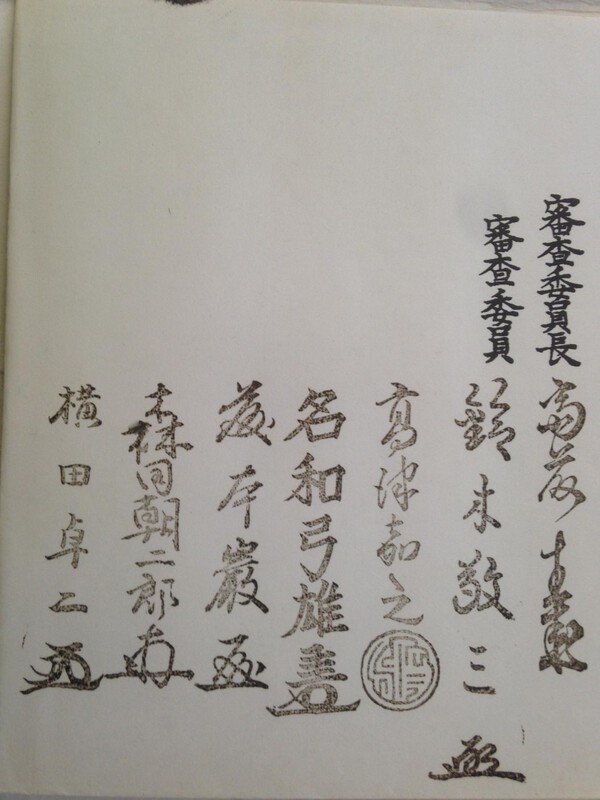 審査委員長
審査委員 鈴木敬三
高津嘉之
名和弓雄
藤本巌
森田朝二郎
横田卓二